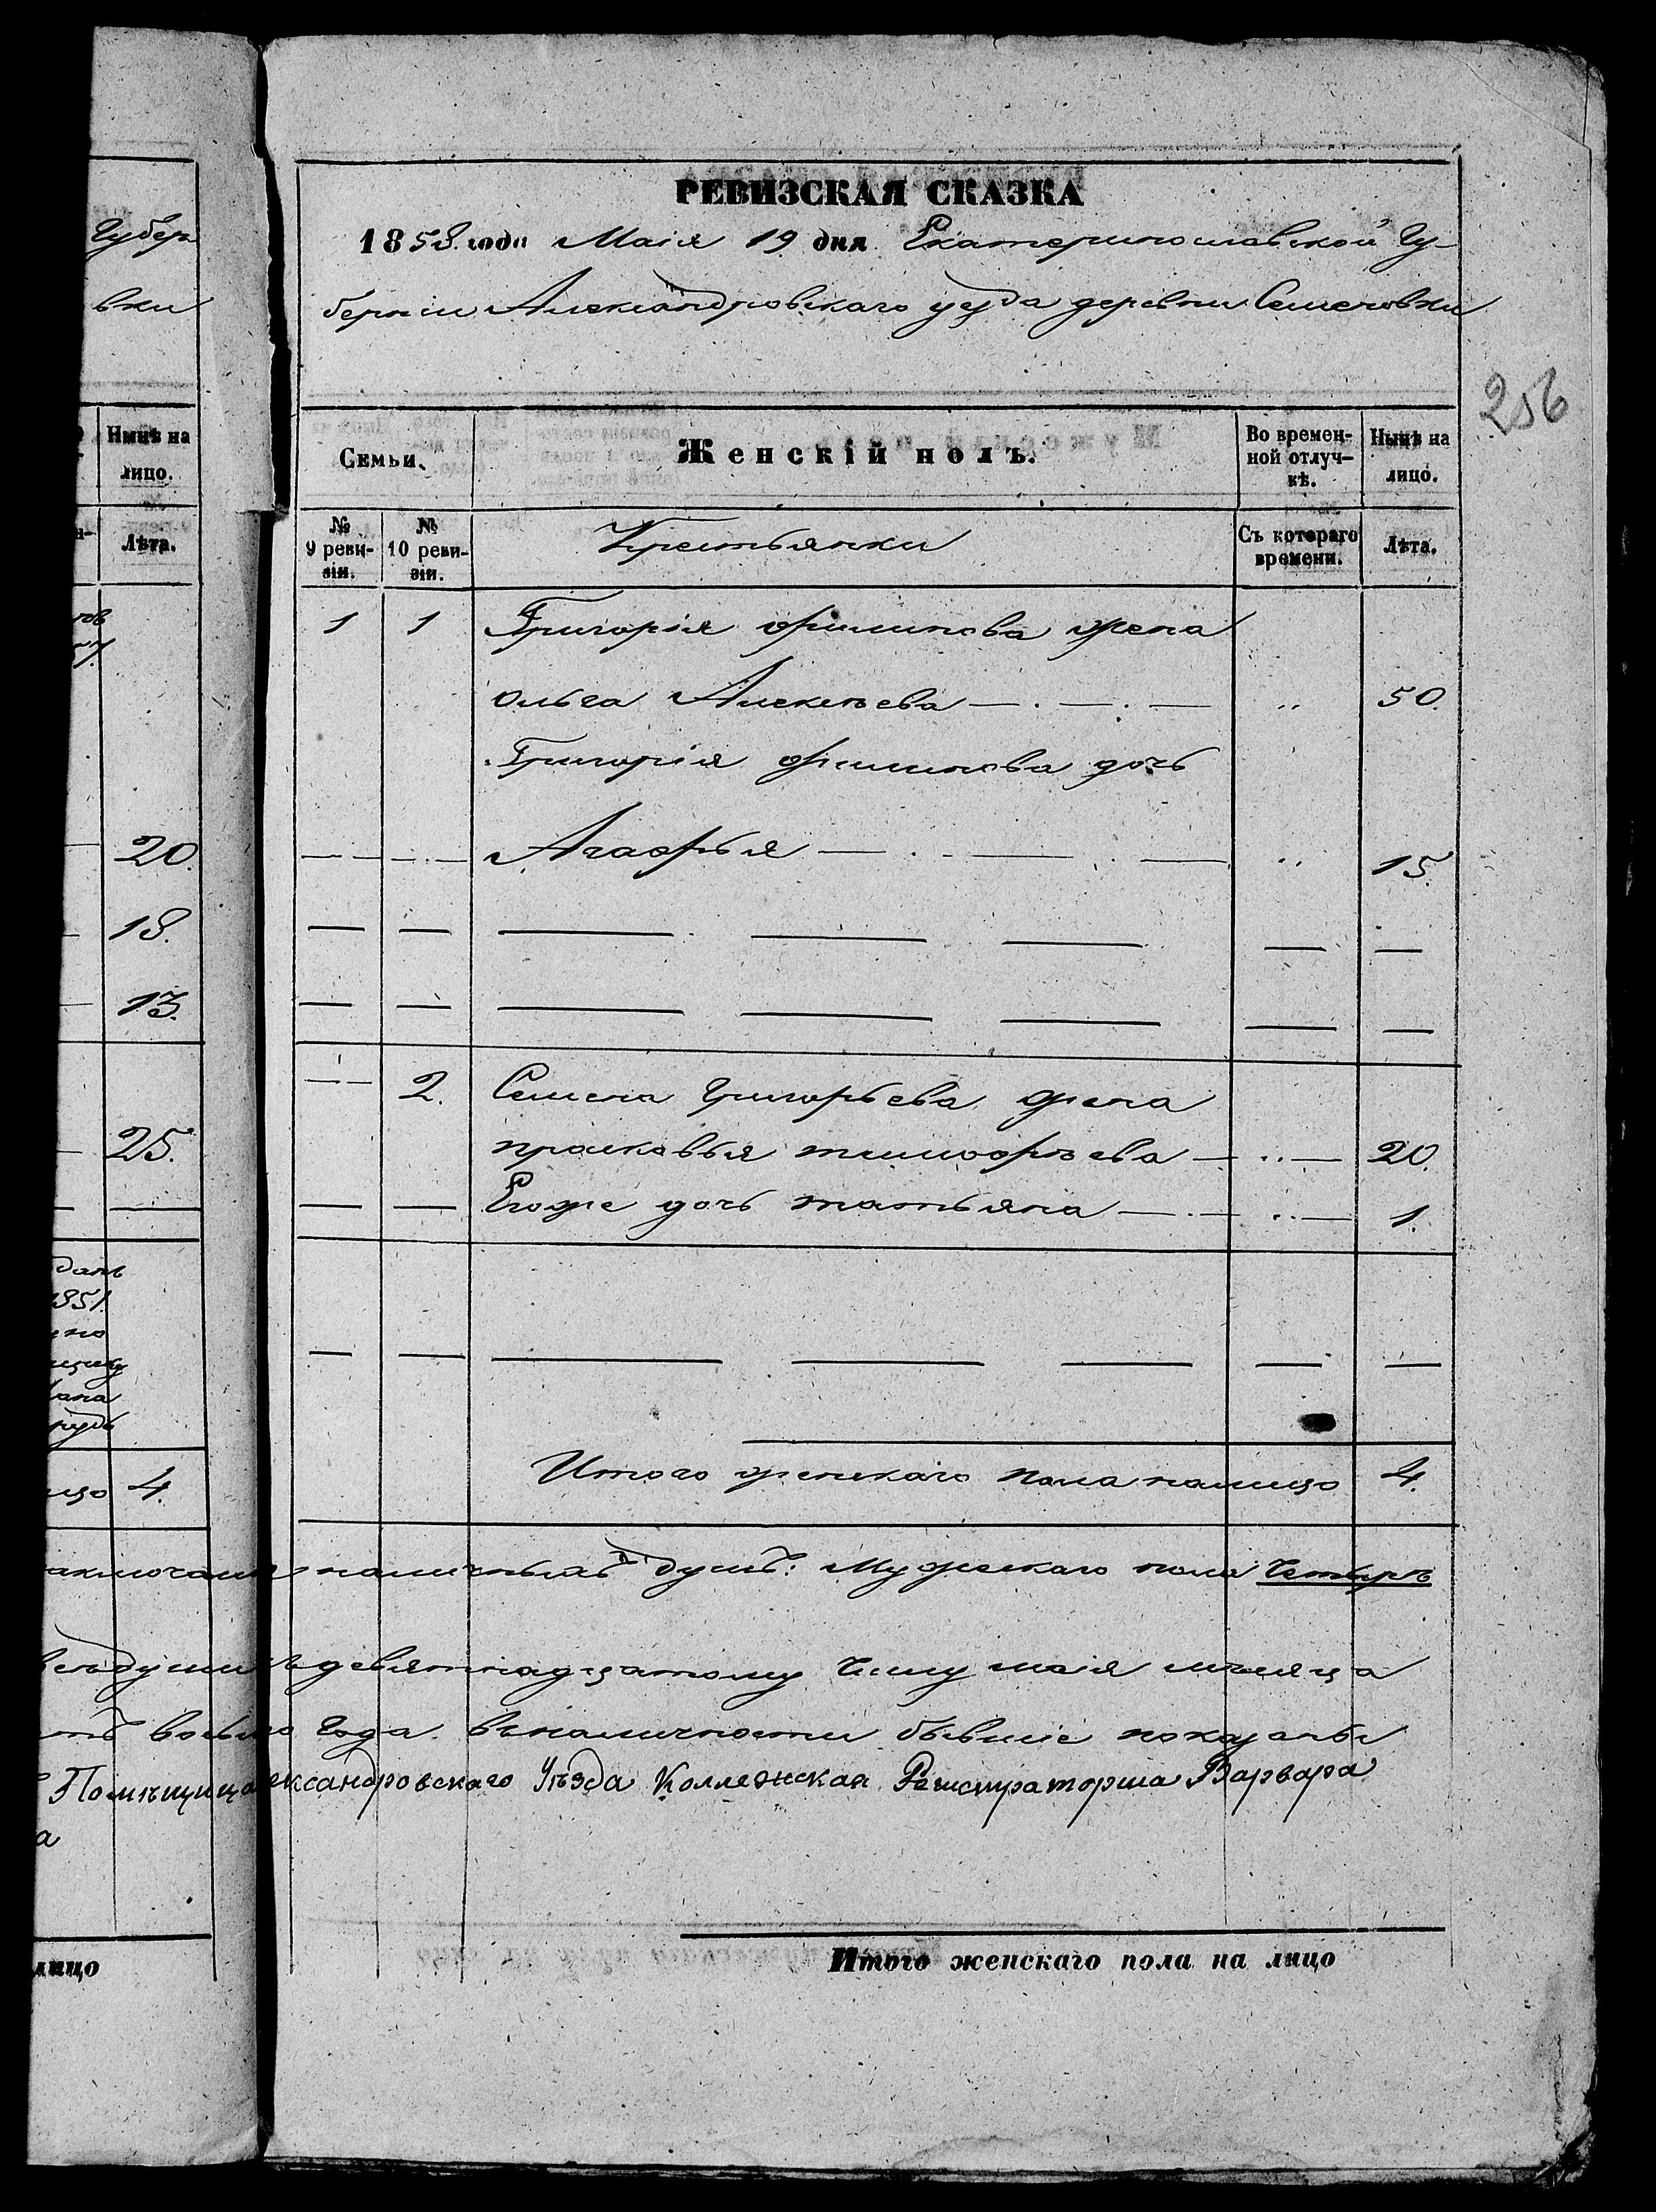 Губер
вки
Нынѣ на
лицо.
Лѣта.
20.
18.
13.
25.
1851.
4.
лицо
РЕВИЗСКАЯ СКАЗКА
1858. года Маія 19 дня Екатеринославской Гу-
берніи Александровскаго уезда деревни Семеновки
256
Семьи.
Женскій полъ.
Во времен-
ной отлуч-
кѣ.
Нынѣ на
лицо.
№
9 реви-
зіи.
№
10 реви-
зіи.
Крестьянки
Съ котораго
времени.
Лѣта.
1 1 Григорія Филипова жена
Ольга Алексеева — . — . — „ 50.
Григорія Филипова дочь
Агафья — . — . — „ 15.
2. Семена Григорьева жена
Прасковья Тимофѣева — „ — 20.
Егоже дочь Татьяна — . — „ — 1.
Итого женскаго пола налицо 4.
наличныхъ душъ: Мужескаго пола Четыре
девятнадцатому Числу маія месяца
Года вналичности бывшіе показаны
Помѣщица Александровскаго Уѣзда Коллежская Регистраторша Варвара
Итого женскаго пола на лицо